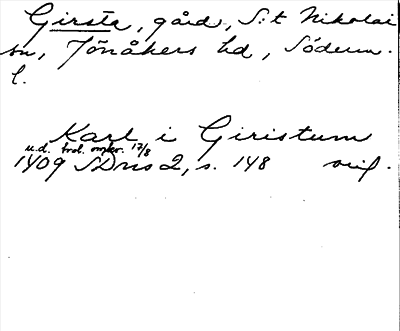 Girsta, gård, S:t Nikolai
sn, Jönåkers hd, Söderm.
l.
Karl i Giristum
u.d. trol. omkr. 17/8
1409 SDns 2, s. 148 orig.